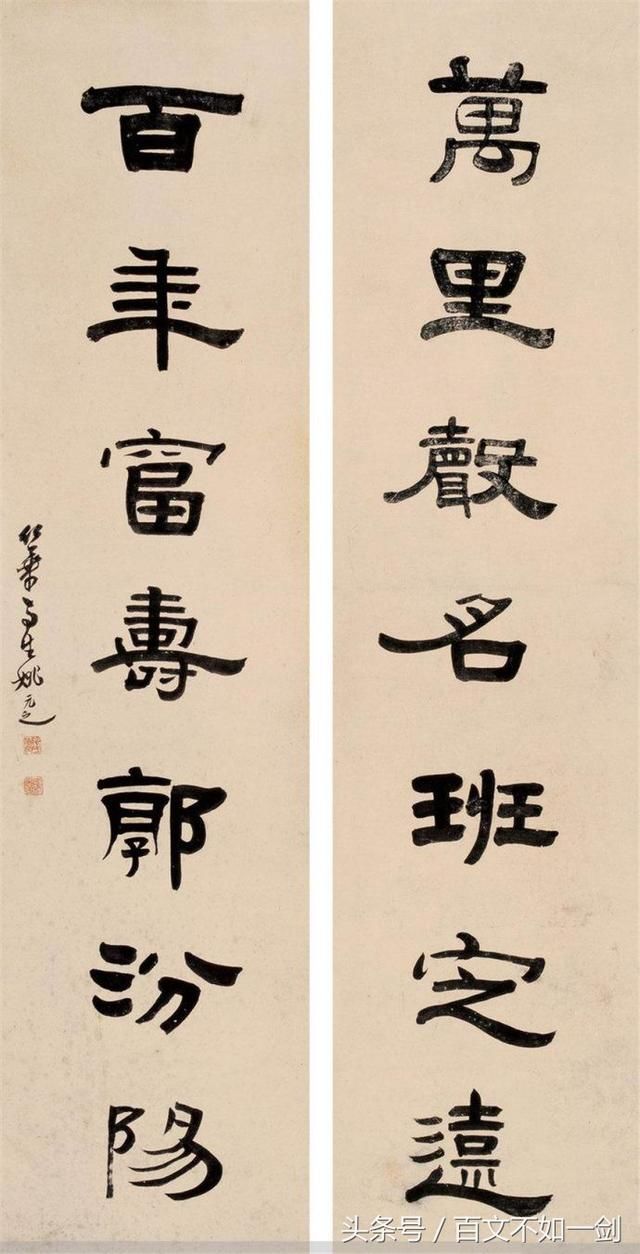 萬里聲名班定遠
百年富壽郭汾陽
竹葉亭生姚元之
头条号 / 百文不如一剑